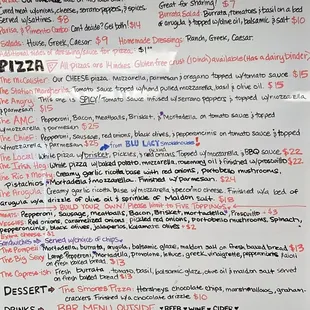 used w/onions, cheese, serrano peppers, & spices.
served w/saltines. $8
Great for sharing! $7
Burrata Salad: Burrata, tomatoes, & basil on a bed
of arugula & topped w/ olive oil, balsamic & salt $10
Pimento Combo: Can't decide? Get both! $14
Salads: House, Greek, Caesar $9 Homemade Dressings: Ranch, Greek, Caesar.
PIZZA All pizzas are 14 inches. Gluten-free crust (10 inch) available. (Has a dairy binder)
Our CHEESE pizza. Mozzarella, parmesan, oregano topped w/tomato sauce $15
Tomato sauce topped w/hand pulled mozzarella, basil & olive oil. $15
The Angry This one is SPICY. Tomato sauce infused w/serrano peppers & topped w/mozzarella
& parmesan $15
The AMC Pepperoni, Bacon, Meatballs, Brisket, & Mortadella on tomato sauce & topped
w/mozzarella & parmesan $25
Pepperoni, sausage, red onions, black olives, & pepperoncinis on tomato sauce & topped
w/mozzarella & parmesan $25 from BLU LACY SMOKEHOUSE
The Local White pizza w/brisket, pickles, & red onions. Topped w/mozzarella & BBQ sauce. $22
White pizza w/baked potato, mozzarella, rosemary, oil & finished w/prosciutto $22
Creamy garlic ricotta base with red onions, portobello mushrooms,
pistachios, & Mortadella & mozzarella. Finished w/ Parmesan. $24
The Arugula Creamy garlic ricotta base w/mozzarella & pecorino cheese. Finished w/a bed of
arugula w/a drizzle of olive oil & sprinkle of Maldon salt. $18
BUILD YOUR OWN: Please limit to FIVE toppings
Pepperoni, Sausage, Meatballs, Bacon, Brisket, mortadella, Prosciutto - $3
Red onions, caramelized onions, pickled red onions, portobello mushrooms, Spinach,
pepperoncinis, black olives, jalapeños, Kalamata olives $2
Extra cheese - $1
Sandwiches served w/choice of chips
Mortadella, burrata, pesto, balsamic glaze, maldon salt on fresh baked bread $13
The Big Sexy Large Pepperoni, Mortadella, provolone, lettuce, greek vinaigrette, pepperoncinis
on fresh baked bread $13
The Caprese-ish Fresh burrata, tomato, basil, balsamic glaze, olive oil & maldon salt served
on fresh baked bread $13
DESSERT → The Smores Pizza: Hershey's chocolate chips, marshmallows, graham
crackers. Finished w/chocolate drizzle $10
DRINKS → BAR MENU OUTSIDE ♥ BEER ♥ WINE ♥ CIDER ♥